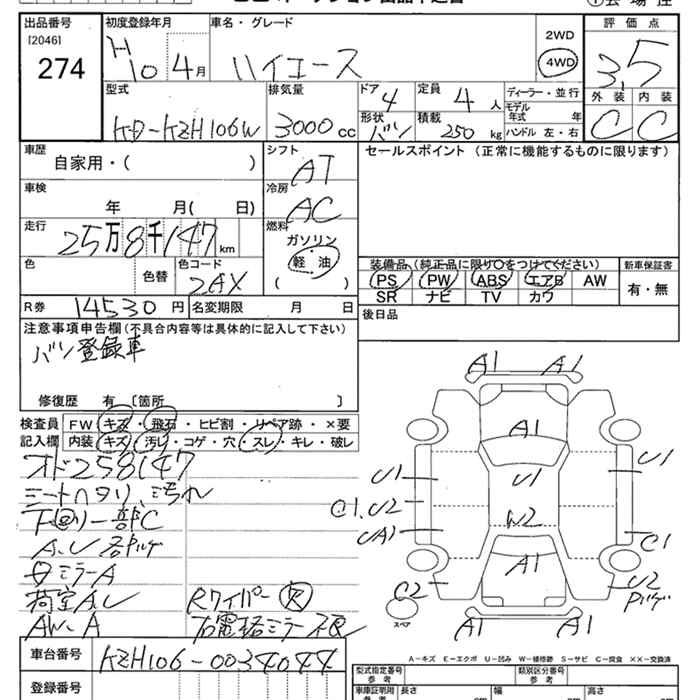 出品番号
[2046]
274
初度登録年月
H10 4月
車名・グレード
ハイエース
2WD
4WD
評価点
3.5
外装 内装
C C
型式
KD-KZH106W
排気量
3000cc
ドア
4
形状
バン
定員
4人
積載
250kg
ディーラー・並行
モデル年式 年
ハンドル 左・右
車歴
自家用・( )
シフト
AT
セールスポイント (正常に機能するものに限ります)
車検
年 月( 日)
冷房
AC
走行
25万8千147km
燃料
ガソリン
軽・油
( )
色
色替
色コード
2AX
装備品(純正品に限り○をつけてください)
PS PW ABS エアB AW
SR ナビ TV カワ
新車保証書
有・無
R券 14530円
名変期限 月 日
後日品
注意事項申告欄(不具合内容等は具体的に記入して下さい)
バン登録車
修復歴 有 〔箇所 〕
検査員記入欄
FW キズ・飛石・ヒビ割・リペア跡・×要
内装 キズ・汚れ・コゲ・穴・スレ・キレ・破レ
オド258147
シートヘタリ、汚れ
下回り一部C
A.U 各パネル
ミラーA
荷室A.U
AW.A
Rワイパー欠
右電格ミラー
A1 A1
A1
U1 U1 U1
C1.U2
W2
UA1 C1
A1
C2 U2
スペア
A1 A1
A-キズ E-エクボ U-凹み W-補修跡 S-サビ C-腐食 ××-交換済
車台番号
KZH106-0034044
登録番号
型式指定番号 参考
類別区分番号 参考
車庫証明附 参考
長さ 幅 高さ